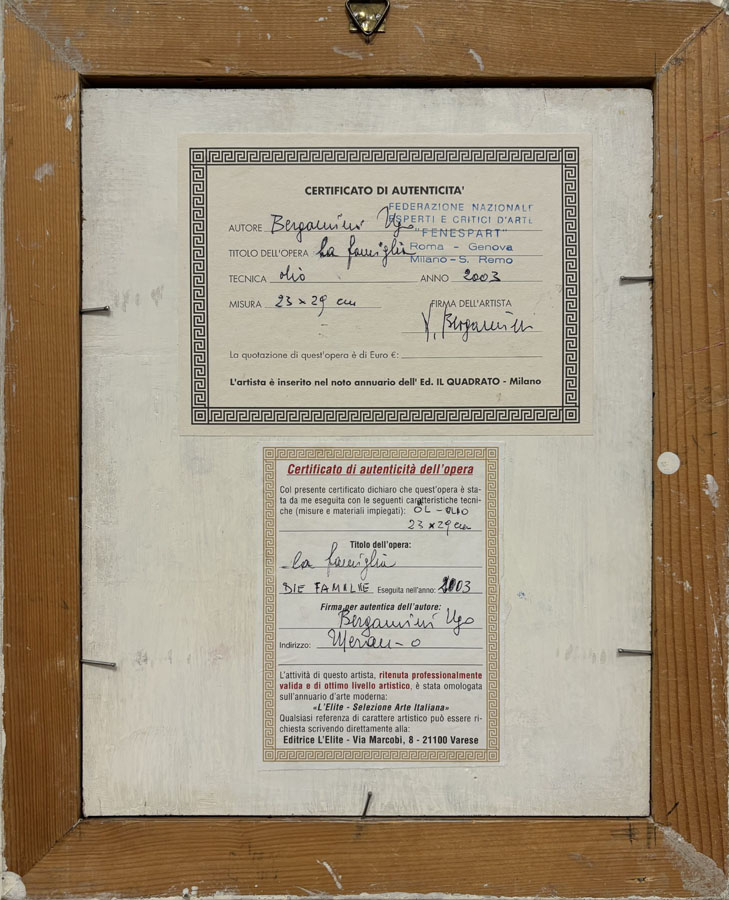 CERTIFICATO DI AUTENTICITA'
FEDERAZIONE NAZIONALE
ESPERTI E CRITICI D'ARTE
"FENESPART"
Roma - Genova
Milano - S. Remo
AUTORE Bergamini Ugo
TITOLO DELL'OPERA La famiglia
TECNICA olio ANNO 2003
MISURA 23 x 29 cm FIRMA DELL'ARTISTA
U. Bergamini
La quotazione di quest'opera è di Euro €:
L'artista è inserito nel noto annuario dell' Ed. IL QUADRATO - Milano
Certificato di autenticità dell'opera
Col presente certificato dichiaro che quest'opera è sta-
ta da me eseguita con le seguenti caratteristiche tecni-
che (misure e materiali impiegati): ÖL - OLIO
23 x 29 cm
Titolo dell'opera:
La famiglia
DIE FAMILIE Eseguita nell'anno: 2003
Firma per autentica dell'autore:
Bergamini Ugo
Indirizzo: Merano
L'attività di questo artista, ritenuta professionalmente
valida e di ottimo livello artistico, è stata omologata
sull'annuario d'arte moderna:
«L'Elite - Selezione Arte Italiana»
Qualsiasi referenza di carattere artistico può essere ri-
chiesta scrivendo direttamente alla:
Editrice L'Elite - Via Marcobi, 8 - 21100 Varese